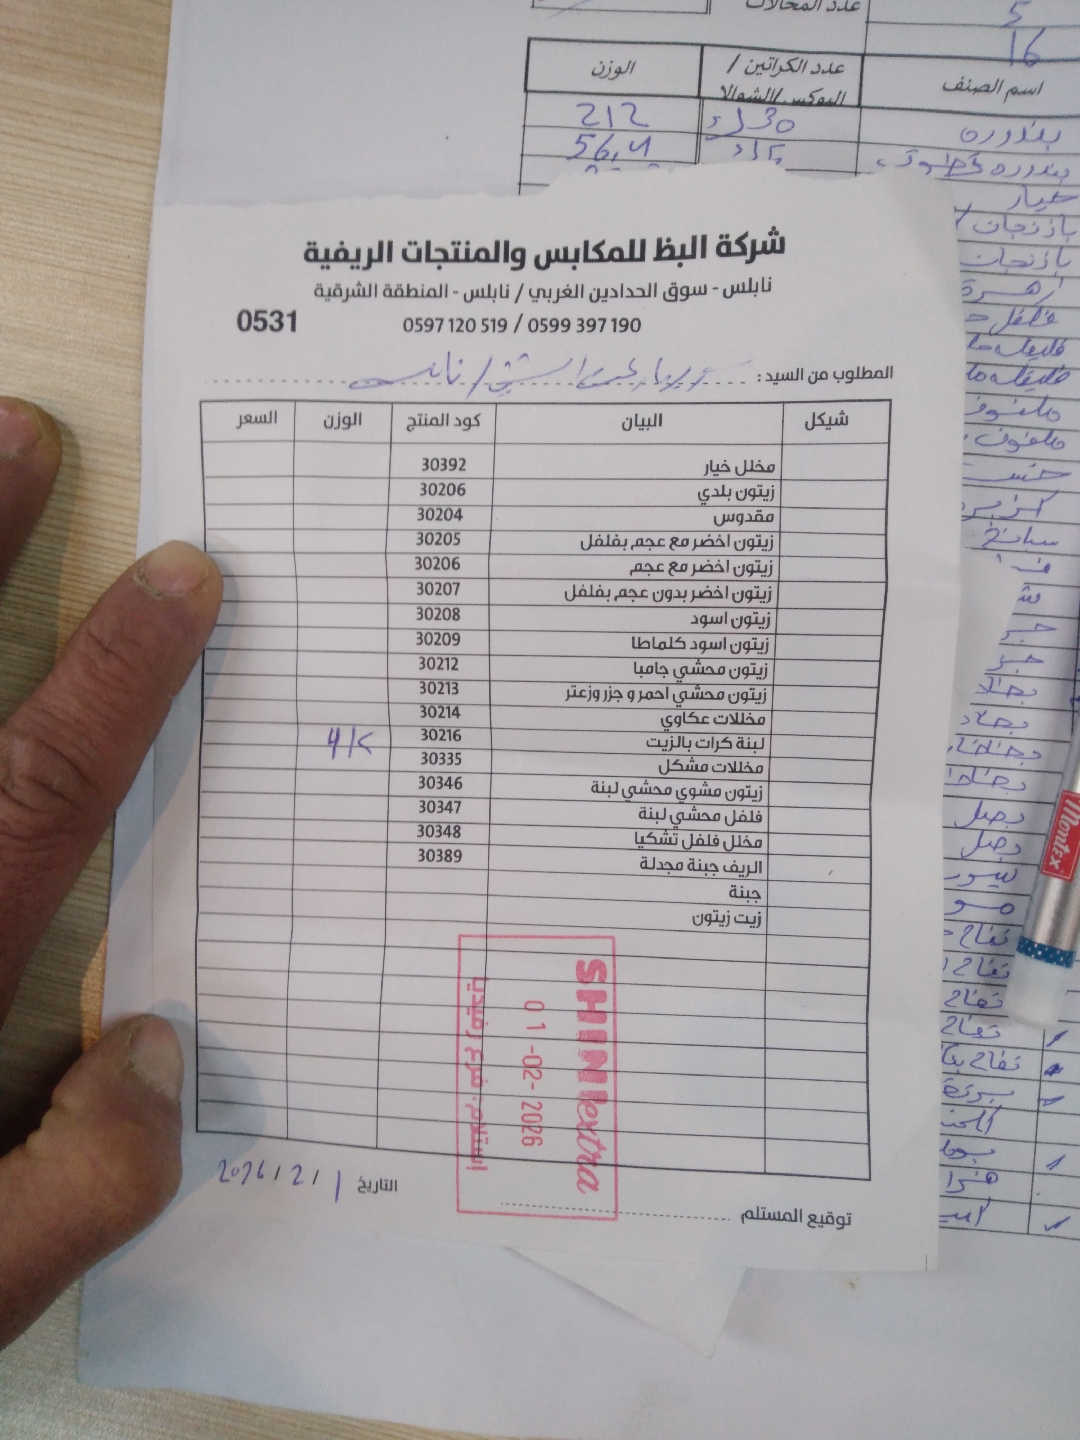 عدد المحالات
5
16
اسم الصنف
عدد الكراتين /
البوكس/الشوالا
الوزن
بندوره
212
بندوره
56,4
خيار
باذنجان
باذنجان
زهرة
فلفل
ملفوف
ملفوف
خس
سبانخ
بصل
بصل
تفاح
تفاح
تفاح
تفاح
تفاح
شركة البظ للمكابس والمنتجات الريفية
نابلس - سوق الحدادين الغربي / نابلس - المنطقة الشرقية
0599 397 190 / 0597 120 519
0531
المطلوب من السيد:
شيكل البيان كود المنتج الوزن السعر
مخلل خيار 30392
زيتون بلدي 30206
مقدوس 30204
زيتون اخضر مع عجم بفلفل 30205
زيتون اخضر مع عجم 30206
زيتون اخضر بدون عجم بفلفل 30207
زيتون اسود 30208
زيتون اسود كلماطا 30209
زيتون محشي جامبا 30212
زيتون محشي احمر و جزر وزعتر 30213
مخللات عكاوي 30214
لبنة كرات بالزيت 30216
مخللات مشكل 30335
زيتون مشوي محشي لبنة 30346
فلفل محشي لبنة 30347
مخلل فلفل تشكيا 30348
الريف جبنة مجدلة 30389
جبنة
زيت زيتون
SHINI extra
01-02-2026
استلام: فرع رفيديا
التاريخ 1/2/2026
توقيع المستلم
Montex